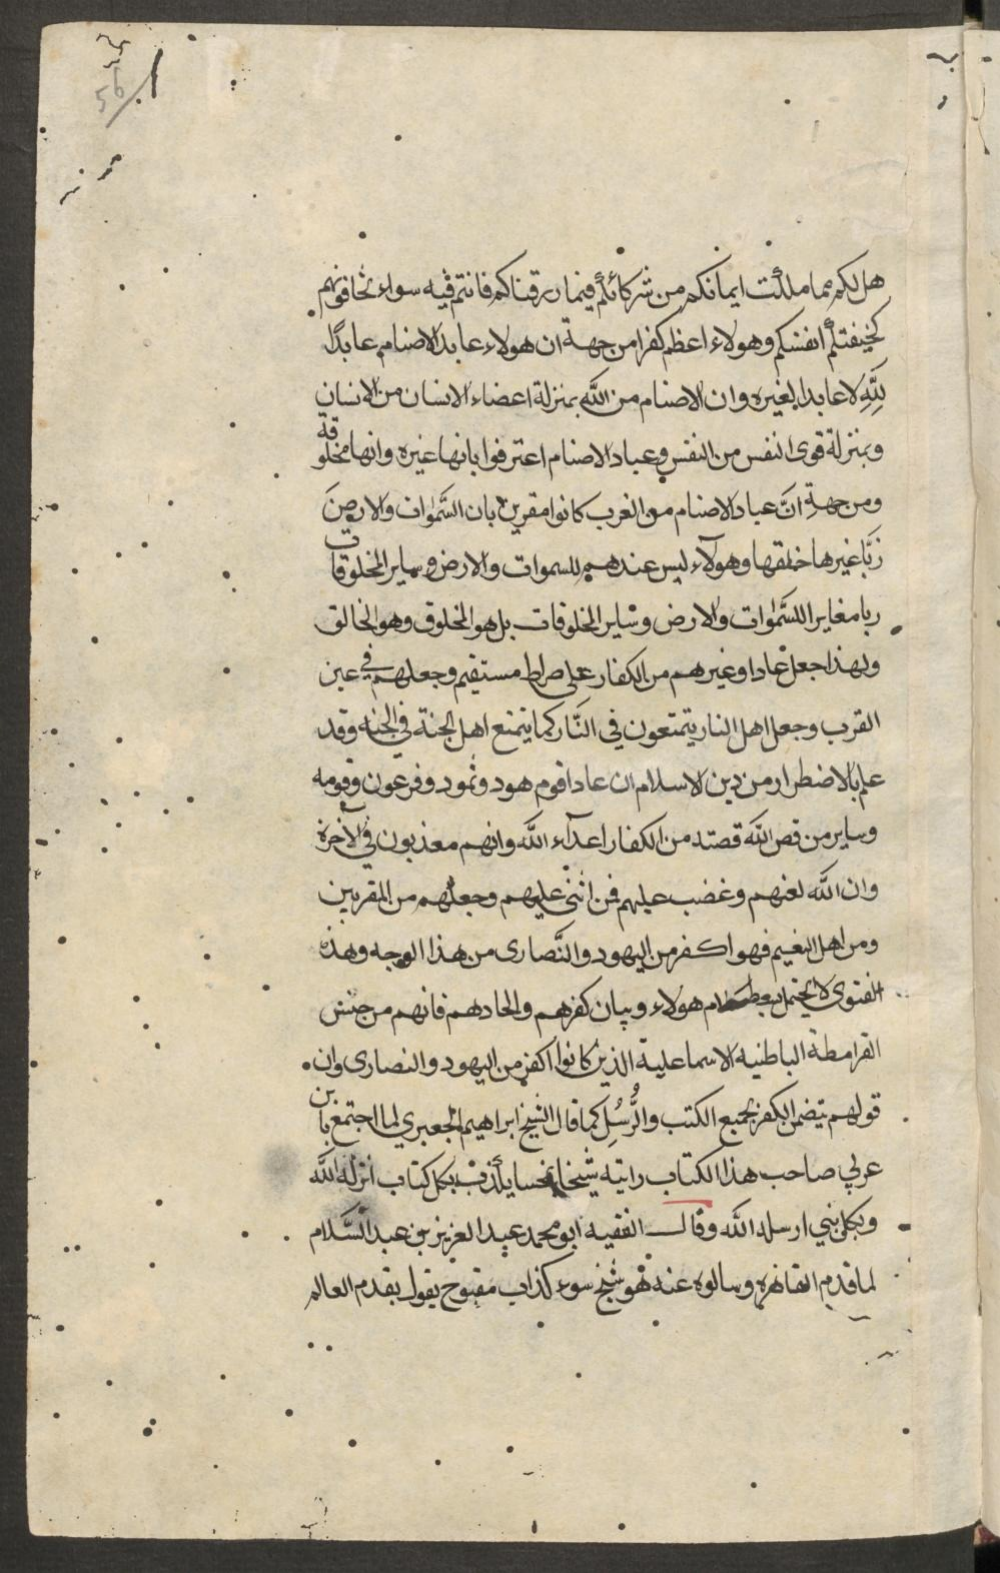 56
هل لكم مما ملكت ايمانكم من شركائكم فيما رزقناكم فانتم فيه سواء تخافونهم
كخيفتكم انفسكم وهولاء اعظم كفرا من جهة ان هولاء عابد الاصنام عابدًا
لِلَّهِ لا عابدا لغيره وان الاصنام من الله بمنزلة اعضاء الانسان من الانسان
وبمنزلة قوى النفس من النفس وعباد الاصنام اعترفوا بانها غيره وانها مخلوقة
ومن جهةِ انَّ عباد الاصنام من العرب كانوا مقرين بان السَّموات والارضَ
ربًّا غيرها خلقها وهولآء ليس عندهم للسموات والارض وساير المخلوقات
ربا مغايرا للسَّموات والارض وساير المخلوقات بل هو المخلوق وهو الخالق
ولهذا جعل عادا وغيرهم من الكفار على صراط مستقيم وجعلهم في عين
القرب وجعل اهل النار يتمتعون في النَّار كما يتمتع اهل الجنة في الجنه وقد
علم بالاضطرار من دين الاسلام ان عادا قوم هود وثمود وفرعون وقومه
وساير من قص الله قصته من الكفار اعدآء الله وانهم معذبون في الآخرة
وان الله لعنهم وغضب عليهم فمن اثنى عليهم وجعلهم من المقربين
ومن اهل النعيم فهو اكفر من اليهود والنَّصارى من هذا الوجه وهذه
الفتوى لا تحتمل بسط كلام هولاء وبيان كفرهم والحادهم فانهم من جنس
القرامطة الباطنيه الاسماعلية الذين كانوا اكفر من اليهود والنصارى وان
قولهم يتضمن الكفر بجميع الكتب والرُّسُلِ كما قال الشيخ ابراهيم الجعبري لما اجتمع بابن
عربي صاحب هذا الكتاب رايته شيخا نجسا يكذب بكل كتاب انزله الله
وبكل نبي ارسله الله وقال الفقيه ابو محمد عبد العزيز بن عبد السَّلام
لما قدم القاهرة وسالوه عنه هو شيخ سوء كذاب مقبوح يقول بقدم العالم